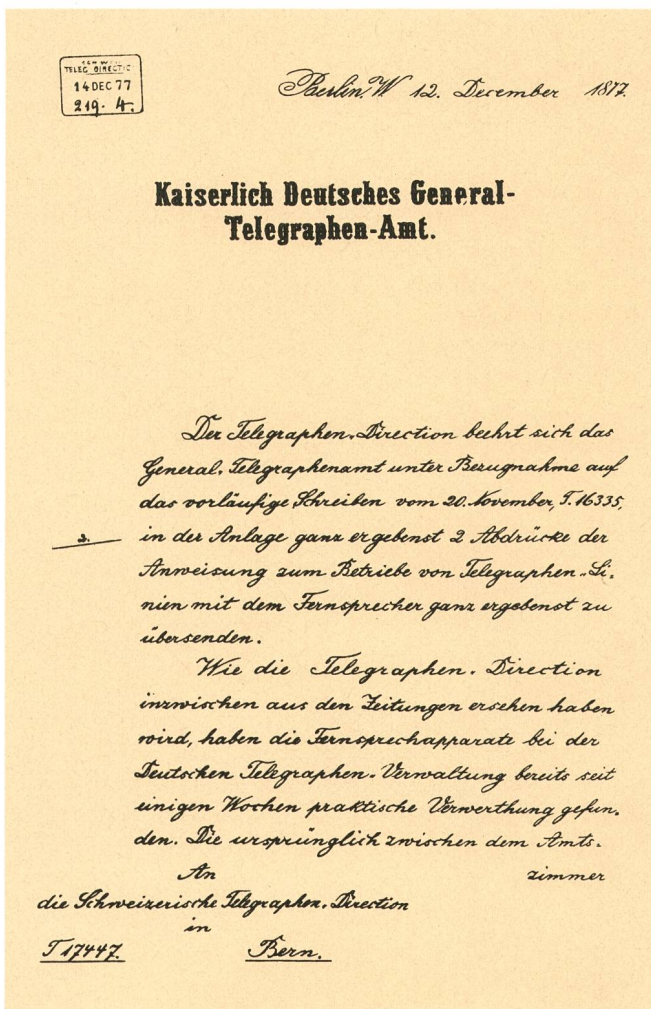 SCHWEIZ.
TELEG. DIRECTIO
14 DEC 77
219. 4.
Berlin, W 12. December 1877.
Kaiserlich Deutsches General-
Telegraphen-Amt.
Der Telegraphen-Direction beehrt sich das
General-Telegraphenamt unter Bezugnahme auf
das vorläufige Schreiben vom 20. November, T. 16335,
2. in der Anlage ganz ergebenst 2 Abdrücke der
Anweisung zum Betriebe von Telegraphen-Li-
nien mit dem Fernsprecher ganz ergebenst zu
übersenden.
Wie die Telegraphen-Direction
inzwischen aus den Zeitungen ersehen haben
wird, haben die Fernsprechapparate bei der
Deutschen Telegraphen-Verwaltung bereits seit
einigen Wochen praktische Verwerthung gefun-
den. Die ursprünglich zwischen dem Amts-
An zimmer
die Schweizerische Telegraphen-Direction
in
T 17447. Bern.